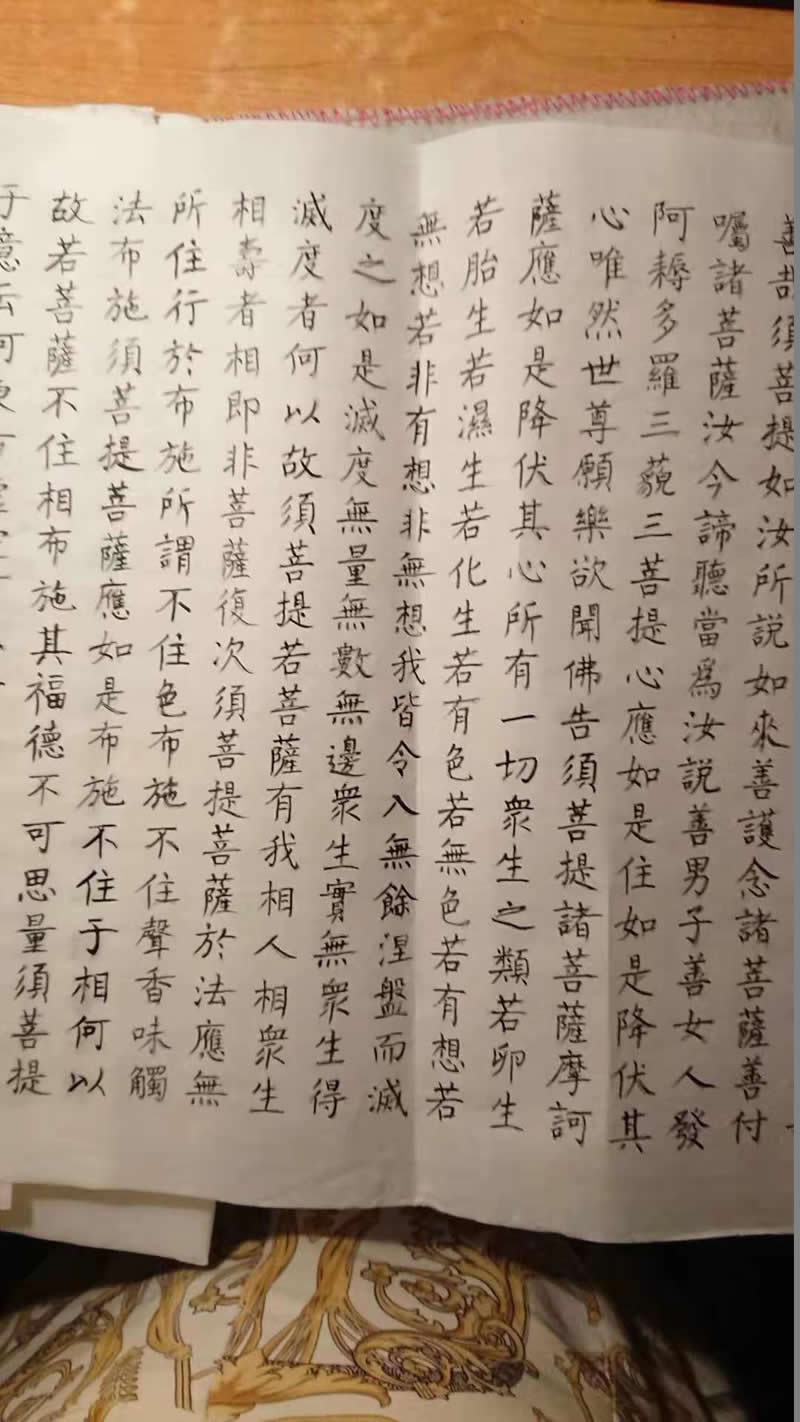 善哉須菩提如汝所説如來善護念諸菩薩善付
囑諸菩薩汝今諦聽當爲汝説善男子善女人發
阿耨多羅三藐三菩提心應如是住如是降伏其
心唯然世尊願樂欲聞佛告須菩提諸菩薩摩訶
薩應如是降伏其心所有一切衆生之類若卵生
若胎生若濕生若化生若有色若無色若有想若
無想若非有想非無想我皆令入無餘涅盤而滅
度之如是滅度無量無數無邊衆生實無衆生得
滅度者何以故須菩提若菩薩有我相人相衆生
相壽者相即非菩薩復次須菩提菩薩於法應無
所住行於布施所謂不住色布施不住聲香味觸
法布施須菩提菩薩應如是布施不住于相何以
故若菩薩不住相布施其福德不可思量須菩提
于意云何東方虛空